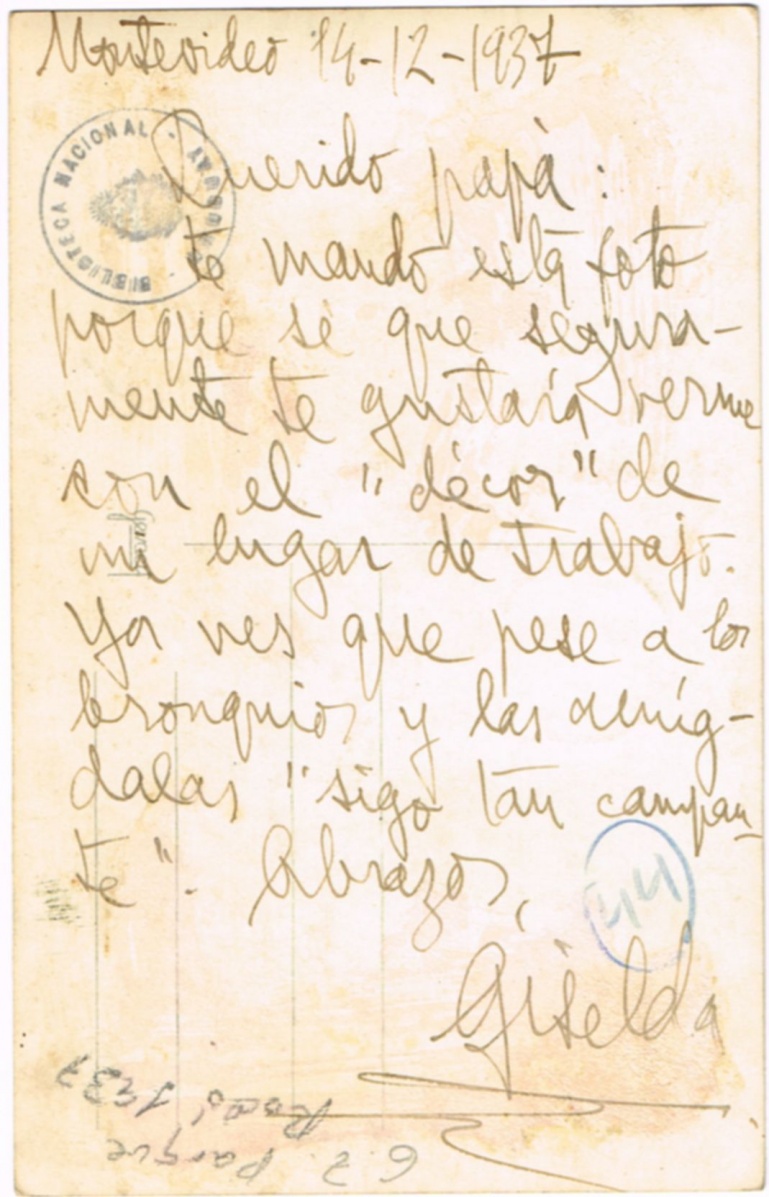 Montevideo 14-12-1937
BIBLIOTECA NACIONAL - URUGUAY -
Querido papá:
te mando esta foto
porque se que segura-
mente te gustaría verme
con el "décor" de
mi lugar de trabajo.
Ya ves que pese a los
bronquios y las amíg-
dalas "sigo tan campan-
te". Abrazos,
44
Giselda
G.Z. Parque
Rodó 1937